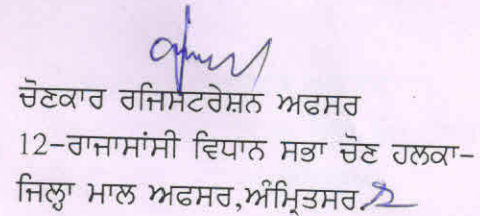 ਚੋਣਕਾਰ ਰਜਿਸਟਰੇਸ਼ਨ ਅਫਸਰ
12-ਰਾਜਾਸਾਂਸੀ ਵਿਧਾਨ ਸਭਾ ਚੋਣ ਹਲਕਾ-
ਜਿਲ੍ਹਾ ਮਾਲ ਅਫਸਰ,ਅੰਮ੍ਰਿਤਸਰ.